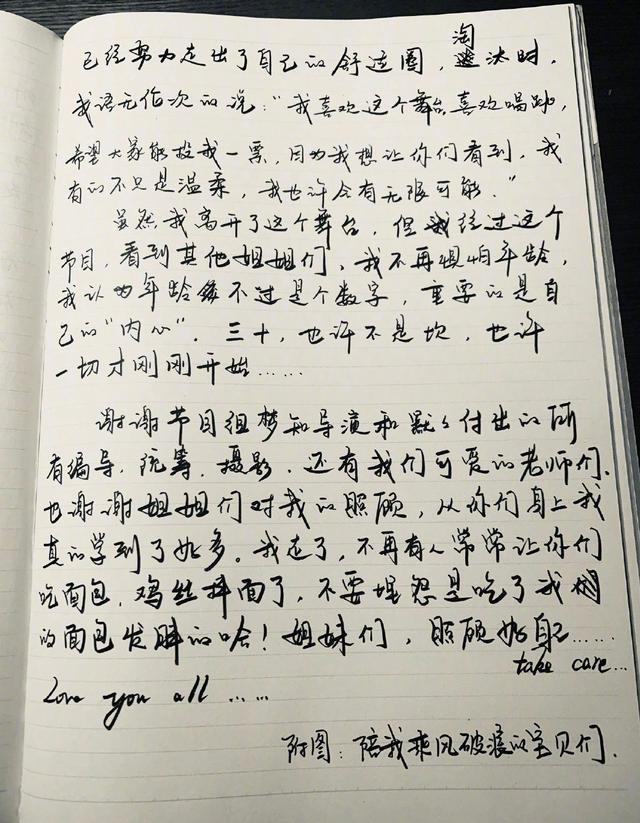 已经努力走出了自己的舒适圈，淘汰时，
我语无伦次的说："我喜欢这个舞台,喜欢唱跳，
希望大家能投我一票，因为我想让你们看到，我
有的不只是温柔，我也许会有无限可能."
虽然我离开了这个舞台，但我经过这个
节目，看到其他姐姐们，我不再惧怕年龄，
我认为年龄不过是个数字，重要的是自
己的"内心"．三十，也许不是坎，也许
一切才刚刚开始……
谢谢节目组梦知导演和默々付出的所
有编导，统筹，摄影，还有我们可爱的老师们．
也谢谢姐姐们对我的照顾，从你们身上我
真的学到了好多．我走了，不再有人常常让你们
吃面包，鸡丝拌面了，不要埋怨是吃了我
的面包发胖的哈！姐妹们，照顾好自己……
take care…
Love you all ……
附图：陪我乘风破浪的宝贝们．